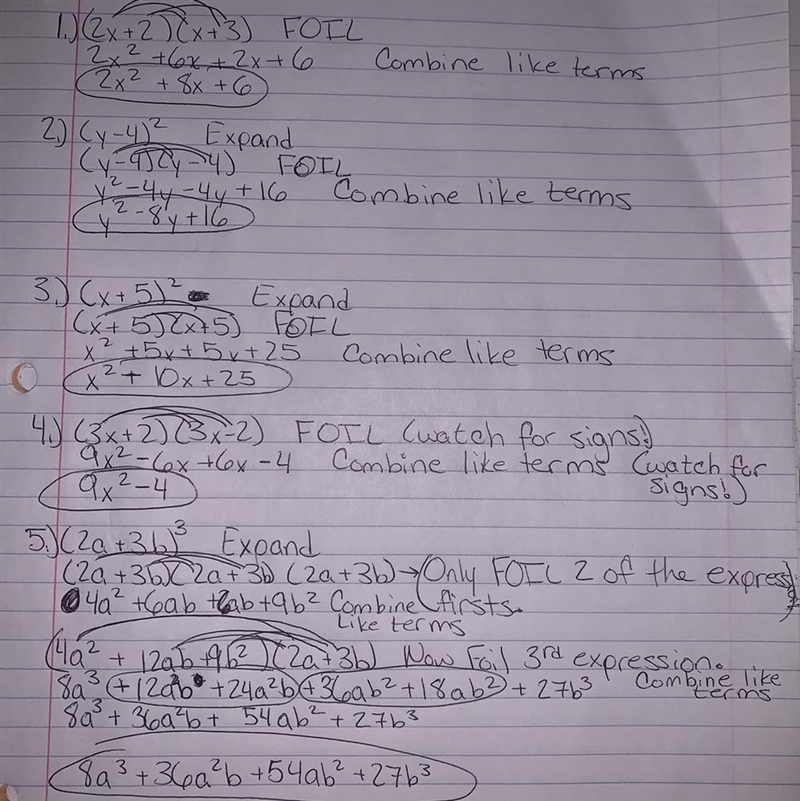 1.) (2x+2)(x+3) FOIL
2x² +6x + 2x + 6 Combine like terms
2x² + 8x + 6
2.) (y-4)² Expand
(y-4)(y-4) FOIL
y²-4y-4y+16 Combine like terms
y²-8y+16
3.) (x+5)² Expand
(x+5)(x+5) FOIL
x² +5x+5x+25 Combine like terms
x² + 10x+25
4.) (3x+2)(3x-2) FOIL (watch for signs!)
9x²-6x+6x-4 Combine like terms (watch for
signs!)
9x²-4
5.) (2a+3b)³ Expand
(2a+3b)(2a+3b)(2a+3b)→(Only FOIL 2 of the express
4a²+6ab+6ab+9b² Combine firsts.
like terms
(4a² + 12ab+9b²)(2a+3b) Now Foil 3rd expression.
8a³ +12a²b +24a²b +36ab²+18ab² + 27b³ Combine like
terms
8a³+36a²b+ 54ab²+27b³
8a³+36a²b+54ab²+27b³